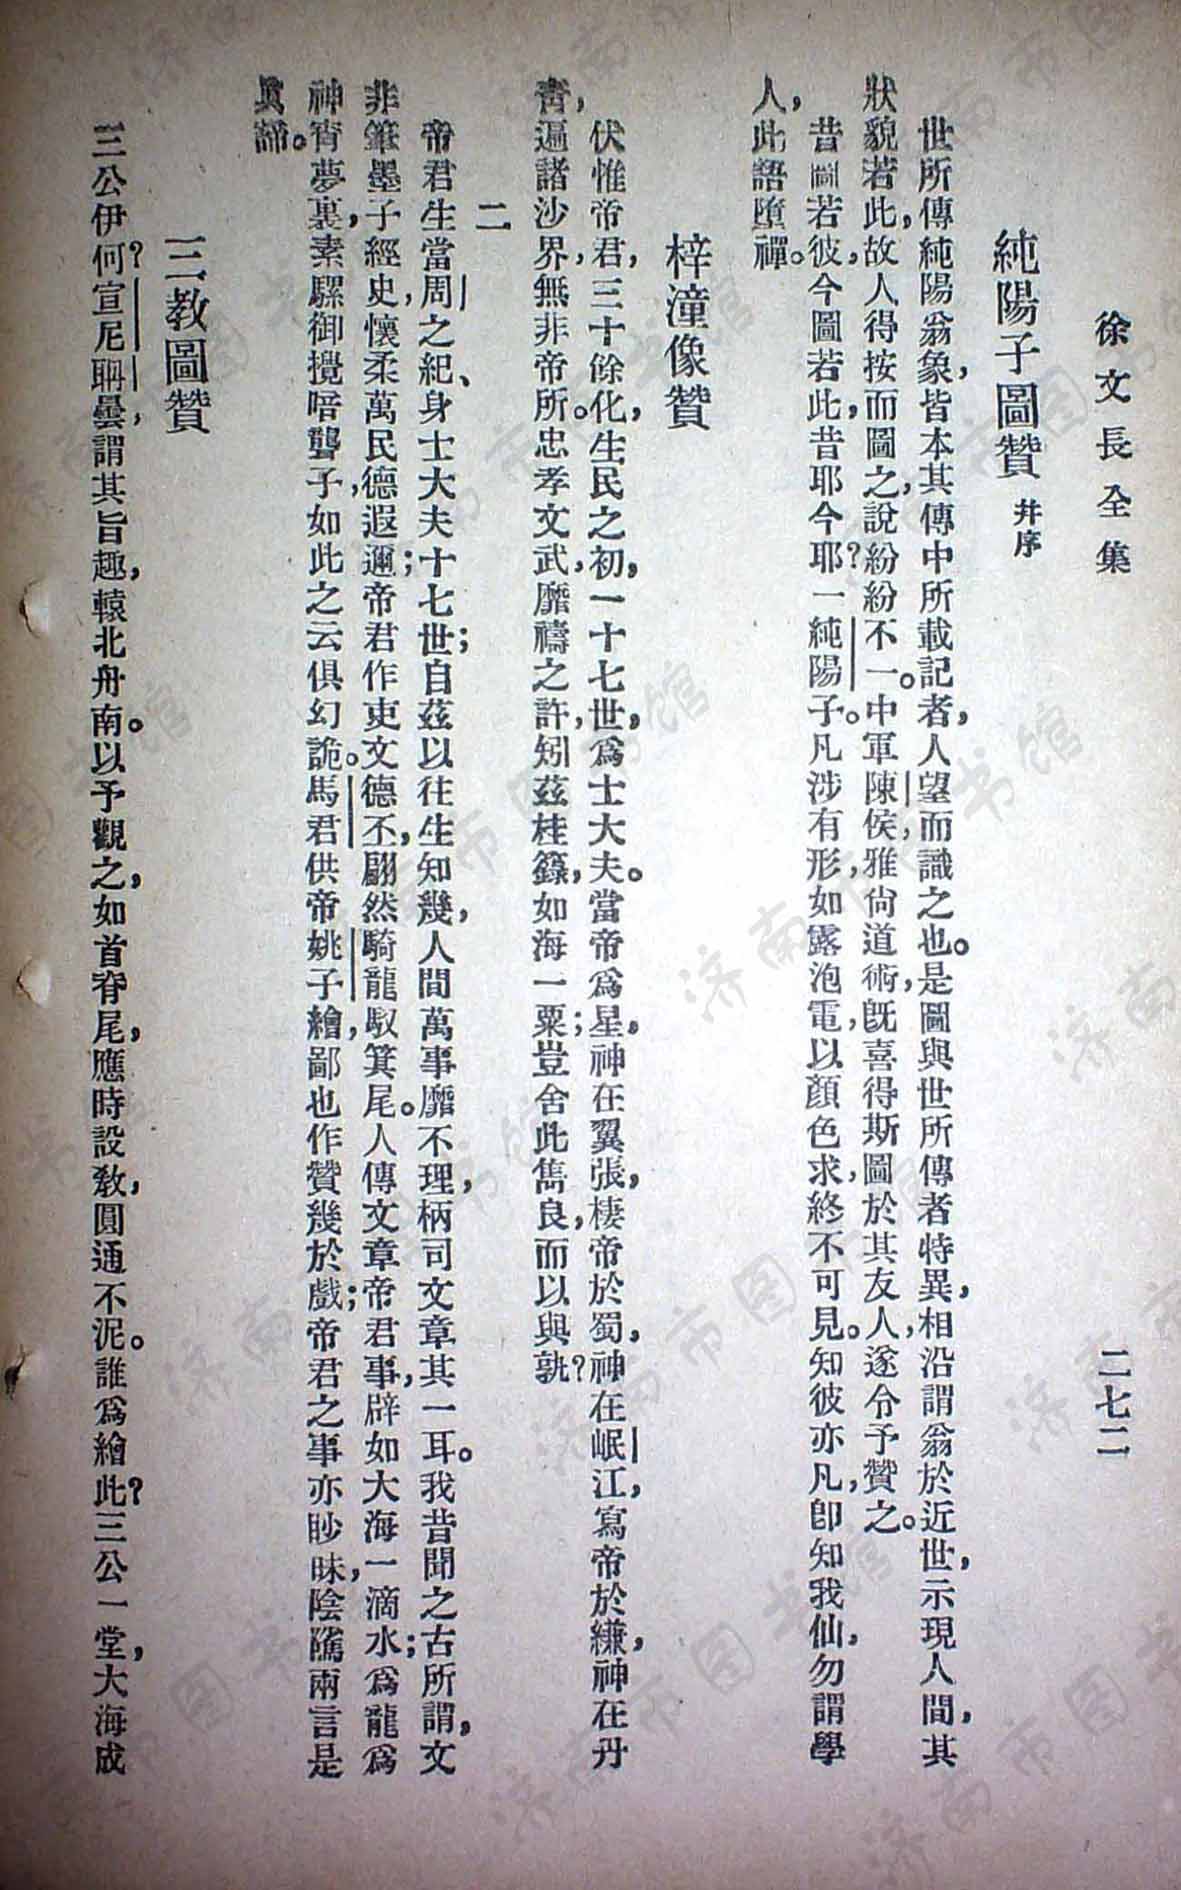 徐文長全集
二七二
純陽子圖贊 幷序
世所傳純陽翁象，皆本其傳中所載記者，人望而識之也。是圖與世所傳者特異，相沿謂翁於近世，示現人間，其
狀貌若此，故人得按而圖之，說紛紛不一。中軍陳侯，雅尙道術，旣喜得斯圖於其友人，遂令予贊之。
昔圖若彼，今圖若此，昔耶今耶？一純陽子。凡涉有形，如露泡電，以顏色求，終不可見。知彼亦凡，卽知我仙，勿謂學
人，此語墮禪。
梓潼像贊
伏惟帝君，三十餘化，生民之初，一十七世，爲士大夫。當帝爲星，神在翼張，棲帝於蜀，神在岷江，寫帝於縑，神在丹
靑，遍諸沙界，無非帝所。忠孝文武，靡禱之許，矧茲桂籙，如海一粟；豈舍此雋良，而以與孰？
二
帝君生當周之紀、身士大夫十七世；自茲以往生知幾，人間萬事靡不理，柄司文章其一耳。我昔聞之古所謂，文
非筆墨子經史，懷柔萬民德遐邇；帝君作吏文德丕，翩然騎龍馭箕尾。人傳文章帝君事，辟如大海一滴水；爲龍爲
神宵夢裏，素騾御攪喑聾子，如此之云俱幻詭。馬君供帝姚子繪，鄙也作贊幾於戲；帝君之事亦眇昧，陰隲兩言是
眞諦。
三教圖贊
三公伊何？宣尼聃曇，謂其旨趣，轅北舟南。以予觀之，如首脊尾，應時設敎，圓通不泥。誰爲繪此？三公一堂，大海成